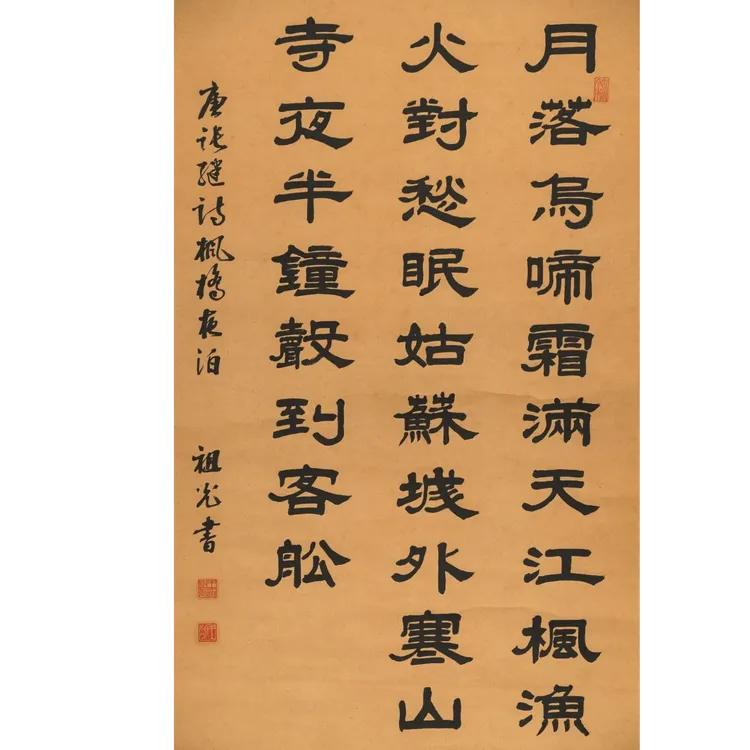 月落烏啼霜滿天江楓漁
火對愁眠姑蘇城外寒山
寺夜半鐘聲到客舩
唐張繼詩楓橋夜泊
祖光書